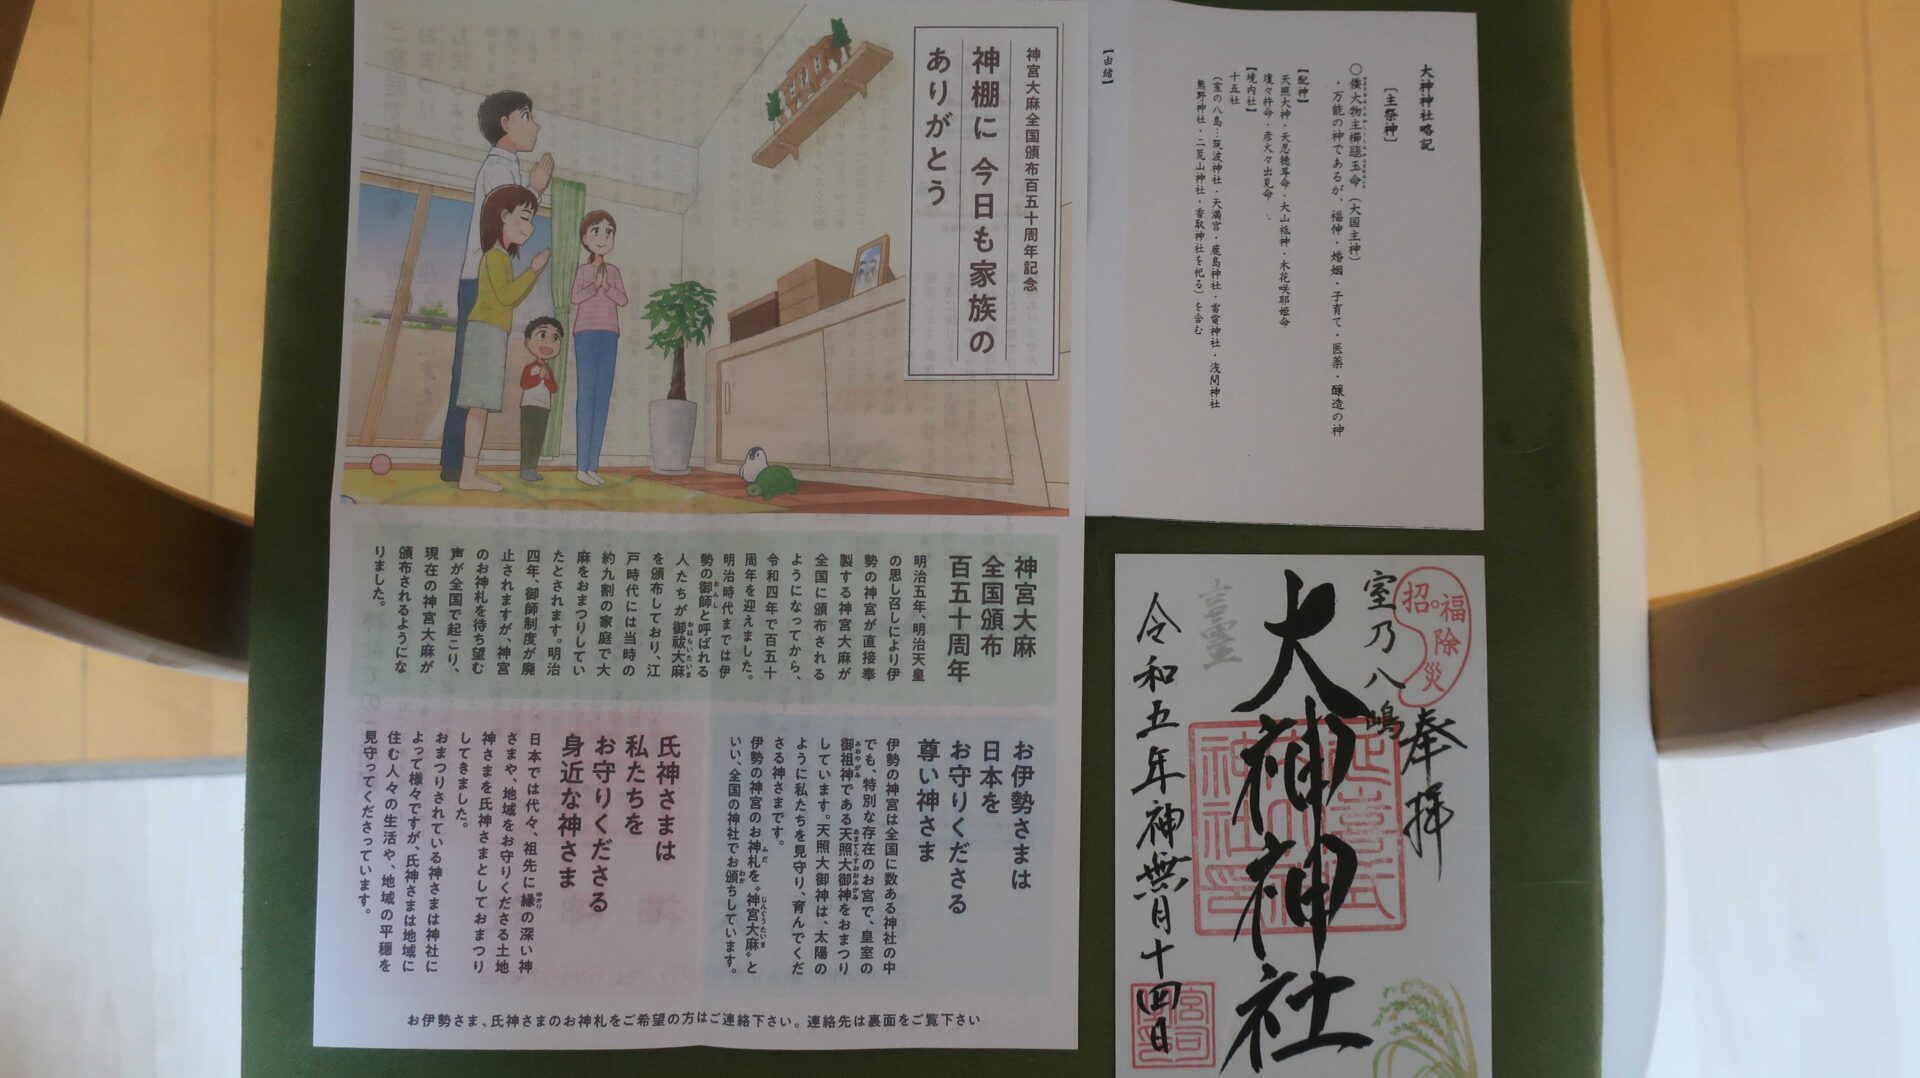 神宮大麻全国頒布百五十周年記念
神棚に 今日も家族の
ありがとう
神宮大麻
全国頒布
百五十周年
明治五年、明治天皇
の思し召しにより伊
勢の神宮が直接奉
製する神宮大麻が
全国に頒布される
ようになってから、
令和四年で百五十
周年を迎えました。
明治時代までは伊
勢の御師と呼ばれる
人たちが御祓大麻
を頒布しており、江
戸時代には当時の
約九割の家庭で大
麻をおまつりしてい
たとされます。明治
四年、御師制度が廃
止されますが、神宮
のお神札を待ち望む
声が全国で起こり、
現在の神宮大麻が
頒布されるようにな
りました。
お伊勢さまは
日本を
お守りくださる
尊い神さま
伊勢の神宮は全国に数ある神社の中
でも、特別な存在のお宮で、皇室の
御祖神である天照大御神をおまつり
しています。天照大御神は、太陽の
ように私たちを見守り、育んでくだ
さる神さまです。
伊勢の神宮のお神札を“神宮大麻”と
いい、全国の神社でお頒ちしています。
氏神さまは
私たちを
お守りくださる
身近な神さま
日本では代々、祖先に縁の深い神
さまや、地域をお守りくださる土地
神さまを氏神さまとしておまつり
してきました。
おまつりされている神さまは神社に
よって様々ですが、氏神さまは地域に
住む人々の生活や、地域の平穏を
見守ってくださっています。
お伊勢さま、氏神さまのお神札をご希望の方はご連絡下さい。連絡先は裏面をご覧下さい
大神神社略記
〔主祭神〕
○倭大物主櫛𤭖玉命（大国主神）
・万能の神であるが、福神・婚姻・子育て・医薬・醸造の神
【配神】
天照大神・天忍穂耳命・大山祗神・木花咲耶姫命
瓊々杵命・彦火々出見命
【境内社】
十五社
（室の八島…筑波神社・天満宮・鹿島神社・雷電神社・浅間神社
熊野神社・二荒山神社・香取神社を祀る）を含む
【由緒】
招福
除災
奉拝
室乃八嶋
大神神社
言霊
令和五年神無月十四日
延喜式
宮司